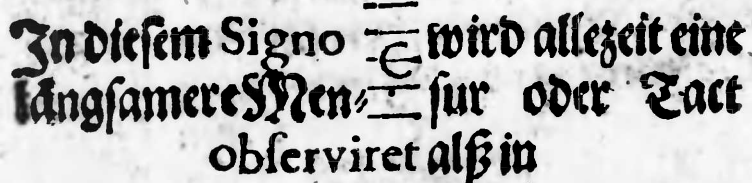 In diesem Signo wird allezeit eine
långsamere Men⸗ sur oder Tact
obſerviret alß in